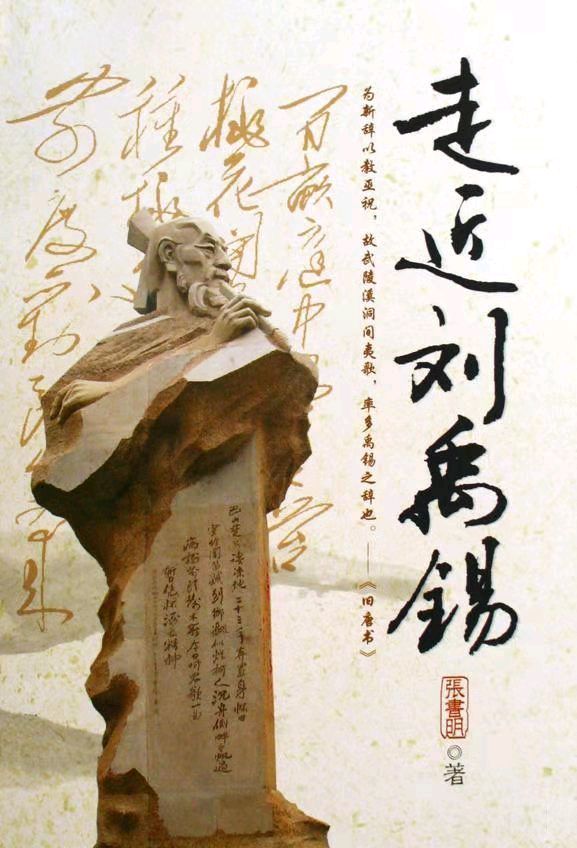 走近刘禹锡
为新辞以教巫祝，故武陵溪洞间夷歌，率多禹锡之辞也。——《旧唐书》
張書明
◎著
百畝庭中苔
桃花
種桃
前度劉郎今又来
巴山楚水凄凉地二十三年弃置身怀旧
空吟闻笛赋到乡翻似烂柯人沉舟侧畔千帆过
病树前头万木春今日听君歌一曲
暂凭杯酒长精神